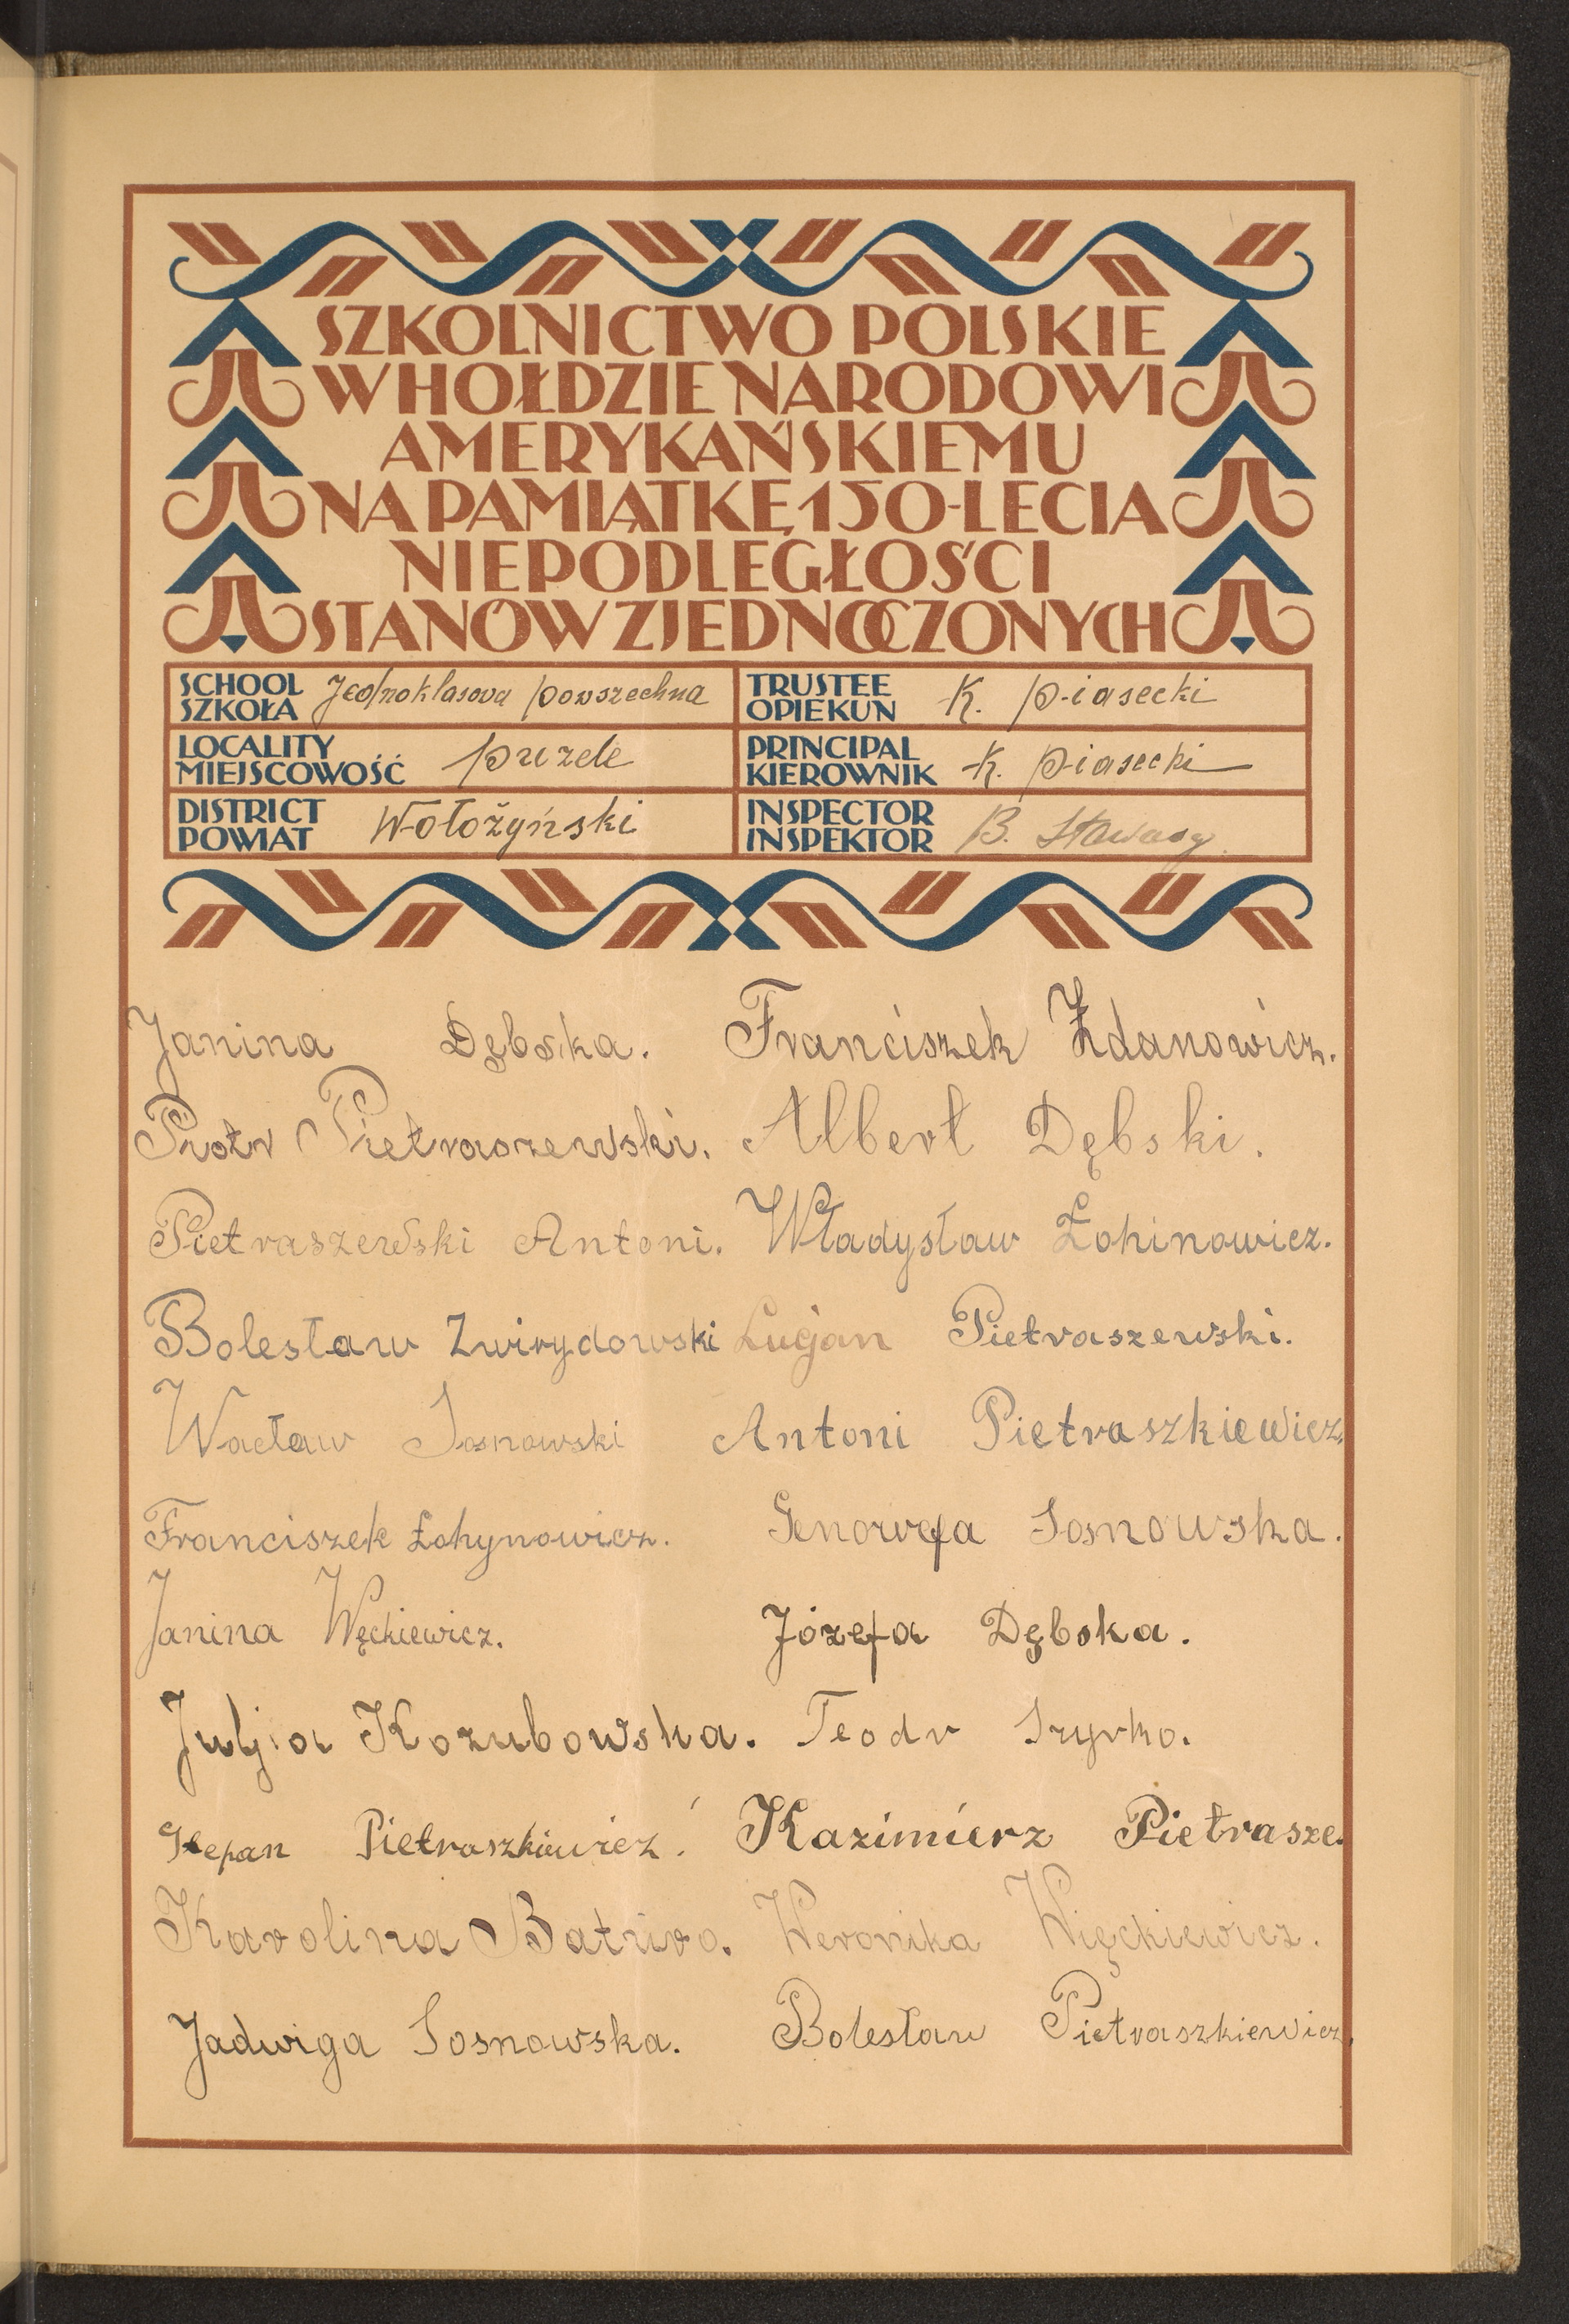 SZKOLNICTWO POLSKIE
W HOŁDZIE NARODOWI
AMERYKAŃSKIEMU
NA PAMIĄTKĘ 150-LECIA
NIEPODLEGŁOŚCI
STANÓW ZJEDNOCZONYCH
SCHOOL
SZKOŁA Jednoklasova powszechna
TRUSTEE
OPIEKUN K. Piasecki
LOCALITY
MIEJSCOWOŚĆ Puzele
PRINCIPAL
KIEROWNIK K. Piasecki
DISTRICT
POWIAT Wołożyński
INSPECTOR
INSPEKTOR B.
Janina Dębska. Franciszek Żdanowicz.
Piotr Pietraszewski. Albert Dębski.
Pietraszewski Antoni. Władysław Łohinowicz.
Bolesław Zwirydowski Lucjan Pietraszewski.
Wacław Sosnowski Antoni Pietraszkiewicz.
Franciszek Łohynowicz. Genowefa Sosnowska.
Janina Węckiewicz. Józefa Dębska.
Julja Kozubowska. Teodr Szyrko.
Stepan Pietraszkiewicz. Kazimierz Pietrasze.
Karolina Weronika Więckiewicz.
Jadwiga Sosnowska. Bolesław Pietraszkiewicz.